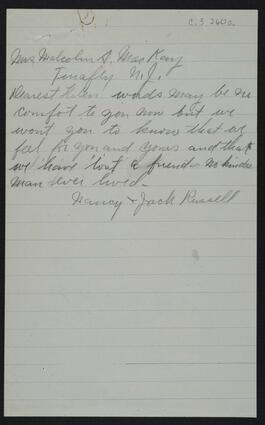 C.3.260a
Mrs Malcolm S. MacKay
Tenafly N.J.
Dearest Helen words may be no
comfort to you now but we
want you to know that we
feel for you and yours and that
we have lost a friend - no kinder
man ever lived -
Nancy + Jack Russell